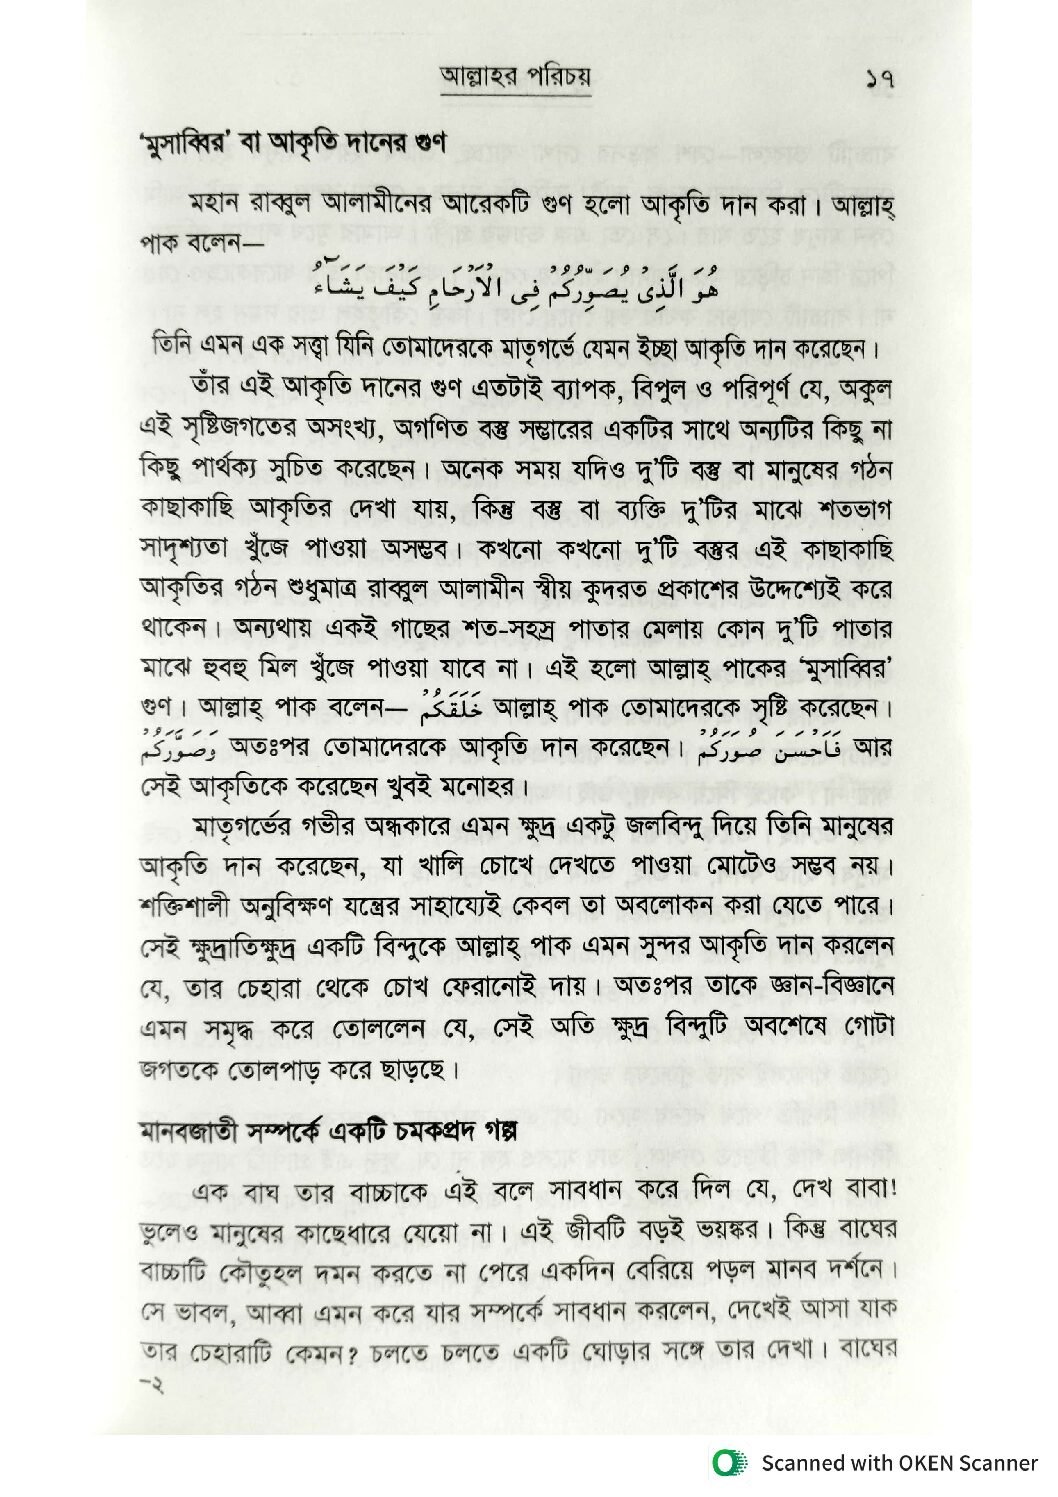 আল্লাহর পরিচয়
১৭
‘মুসাব্বির’ বা আকৃতি দানের গুণ
মহান রাব্বুল আলামীনের আরেকটি গুণ হলো আকৃতি দান করা। আল্লাহ্
পাক বলেন—
هُوَ الَّذِى يُصَوِّرُكُمْ فِى الْاَرْحَامِ كَيْفَ يَشَآءُ
তিনি এমন এক সত্ত্বা যিনি তোমাদেরকে মাতৃগর্ভে যেমন ইচ্ছা আকৃতি দান করেছেন।
তাঁর এই আকৃতি দানের গুণ এতটাই ব্যাপক, বিপুল ও পরিপূর্ণ যে, অকুল
এই সৃষ্টিজগতের অসংখ্য, অগণিত বস্তু সম্ভারের একটির সাথে অন্যটির কিছু না
কিছু পার্থক্য সুচিত করেছেন। অনেক সময় যদিও দু’টি বস্তু বা মানুষের গঠন
কাছাকাছি আকৃতির দেখা যায়, কিন্তু বস্তু বা ব্যক্তি দু’টির মাঝে শতভাগ
সাদৃশ্যতা খুঁজে পাওয়া অসম্ভব। কখনো কখনো দু’টি বস্তুর এই কাছাকাছি
আকৃতির গঠন শুধুমাত্র রাব্বুল আলামীন স্বীয় কুদরত প্রকাশের উদ্দেশ্যেই করে
থাকেন। অন্যথায় একই গাছের শত-সহস্র পাতার মেলায় কোন দু’টি পাতার
মাঝে হুবহু মিল খুঁজে পাওয়া যাবে না। এই হলো আল্লাহ্ পাকের ‘মুসাব্বির’
গুণ। আল্লাহ্ পাক বলেন— خَلَقَكُمْ আল্লাহ্ পাক তোমাদেরকে সৃষ্টি করেছেন।
وَصَوَّرَكُمْ অতঃপর তোমাদেরকে আকৃতি দান করেছেন। فَاَحْسَنَ صُوَرَكُمْ আর
সেই আকৃতিকে করেছেন খুবই মনোহর।
মাতৃগর্ভের গভীর অন্ধকারে এমন ক্ষুদ্র একটু জলবিন্দু দিয়ে তিনি মানুষের
আকৃতি দান করেছেন, যা খালি চোখে দেখতে পাওয়া মোটেও সম্ভব নয়।
শক্তিশালী অনুবিক্ষণ যন্ত্রের সাহায্যেই কেবল তা অবলোকন করা যেতে পারে।
সেই ক্ষুদ্রাতিক্ষুদ্র একটি বিন্দুকে আল্লাহ্ পাক এমন সুন্দর আকৃতি দান করলেন
যে, তার চেহারা থেকে চোখ ফেরানোই দায়। অতঃপর তাকে জ্ঞান-বিজ্ঞানে
এমন সমৃদ্ধ করে তোললেন যে, সেই অতি ক্ষুদ্র বিন্দুটি অবশেষে গোটা
জগতকে তোলপাড় করে ছাড়ছে।
মানবজাতী সম্পর্কে একটি চমকপ্রদ গল্প
এক বাঘ তার বাচ্চাকে এই বলে সাবধান করে দিল যে, দেখ বাবা!
ভুলেও মানুষের কাছেধারে যেয়ো না। এই জীবটি বড়ই ভয়ঙ্কর। কিন্তু বাঘের
বাচ্চাটি কৌতুহল দমন করতে না পেরে একদিন বেরিয়ে পড়ল মানব দর্শনে।
সে ভাবল, আব্বা এমন করে যার সম্পর্কে সাবধান করলেন, দেখেই আসা যাক
তার চেহারাটি কেমন? চলতে চলতে একটি ঘোড়ার সঙ্গে তার দেখা। বাঘের
-২
Scanned with OKEN Scanner